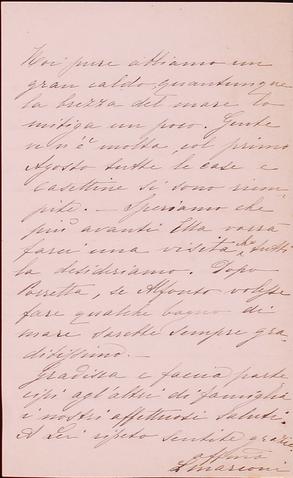 Noi pure abbiamo un
gran caldo, quantunque
la brezza del mare lo
mitiga un poco. Gente
ve n'è molta, col primo
Agosto tutte le case e
casettine si sono riem-
pite. — Speriamo che
più avanti Ella vorrà
farci una visita tutti
la desideriamo. Dopo
Beretta, se Alfonso volesse
fare qualche bagno di
mare sarebbe sempre gra-
ditissimo. —
Gradisca e faccia parte
cipi agl'altri di famiglia
i nostri affettuosi saluti.
A Lei ripeto sentite grazie
affma
LMarconi